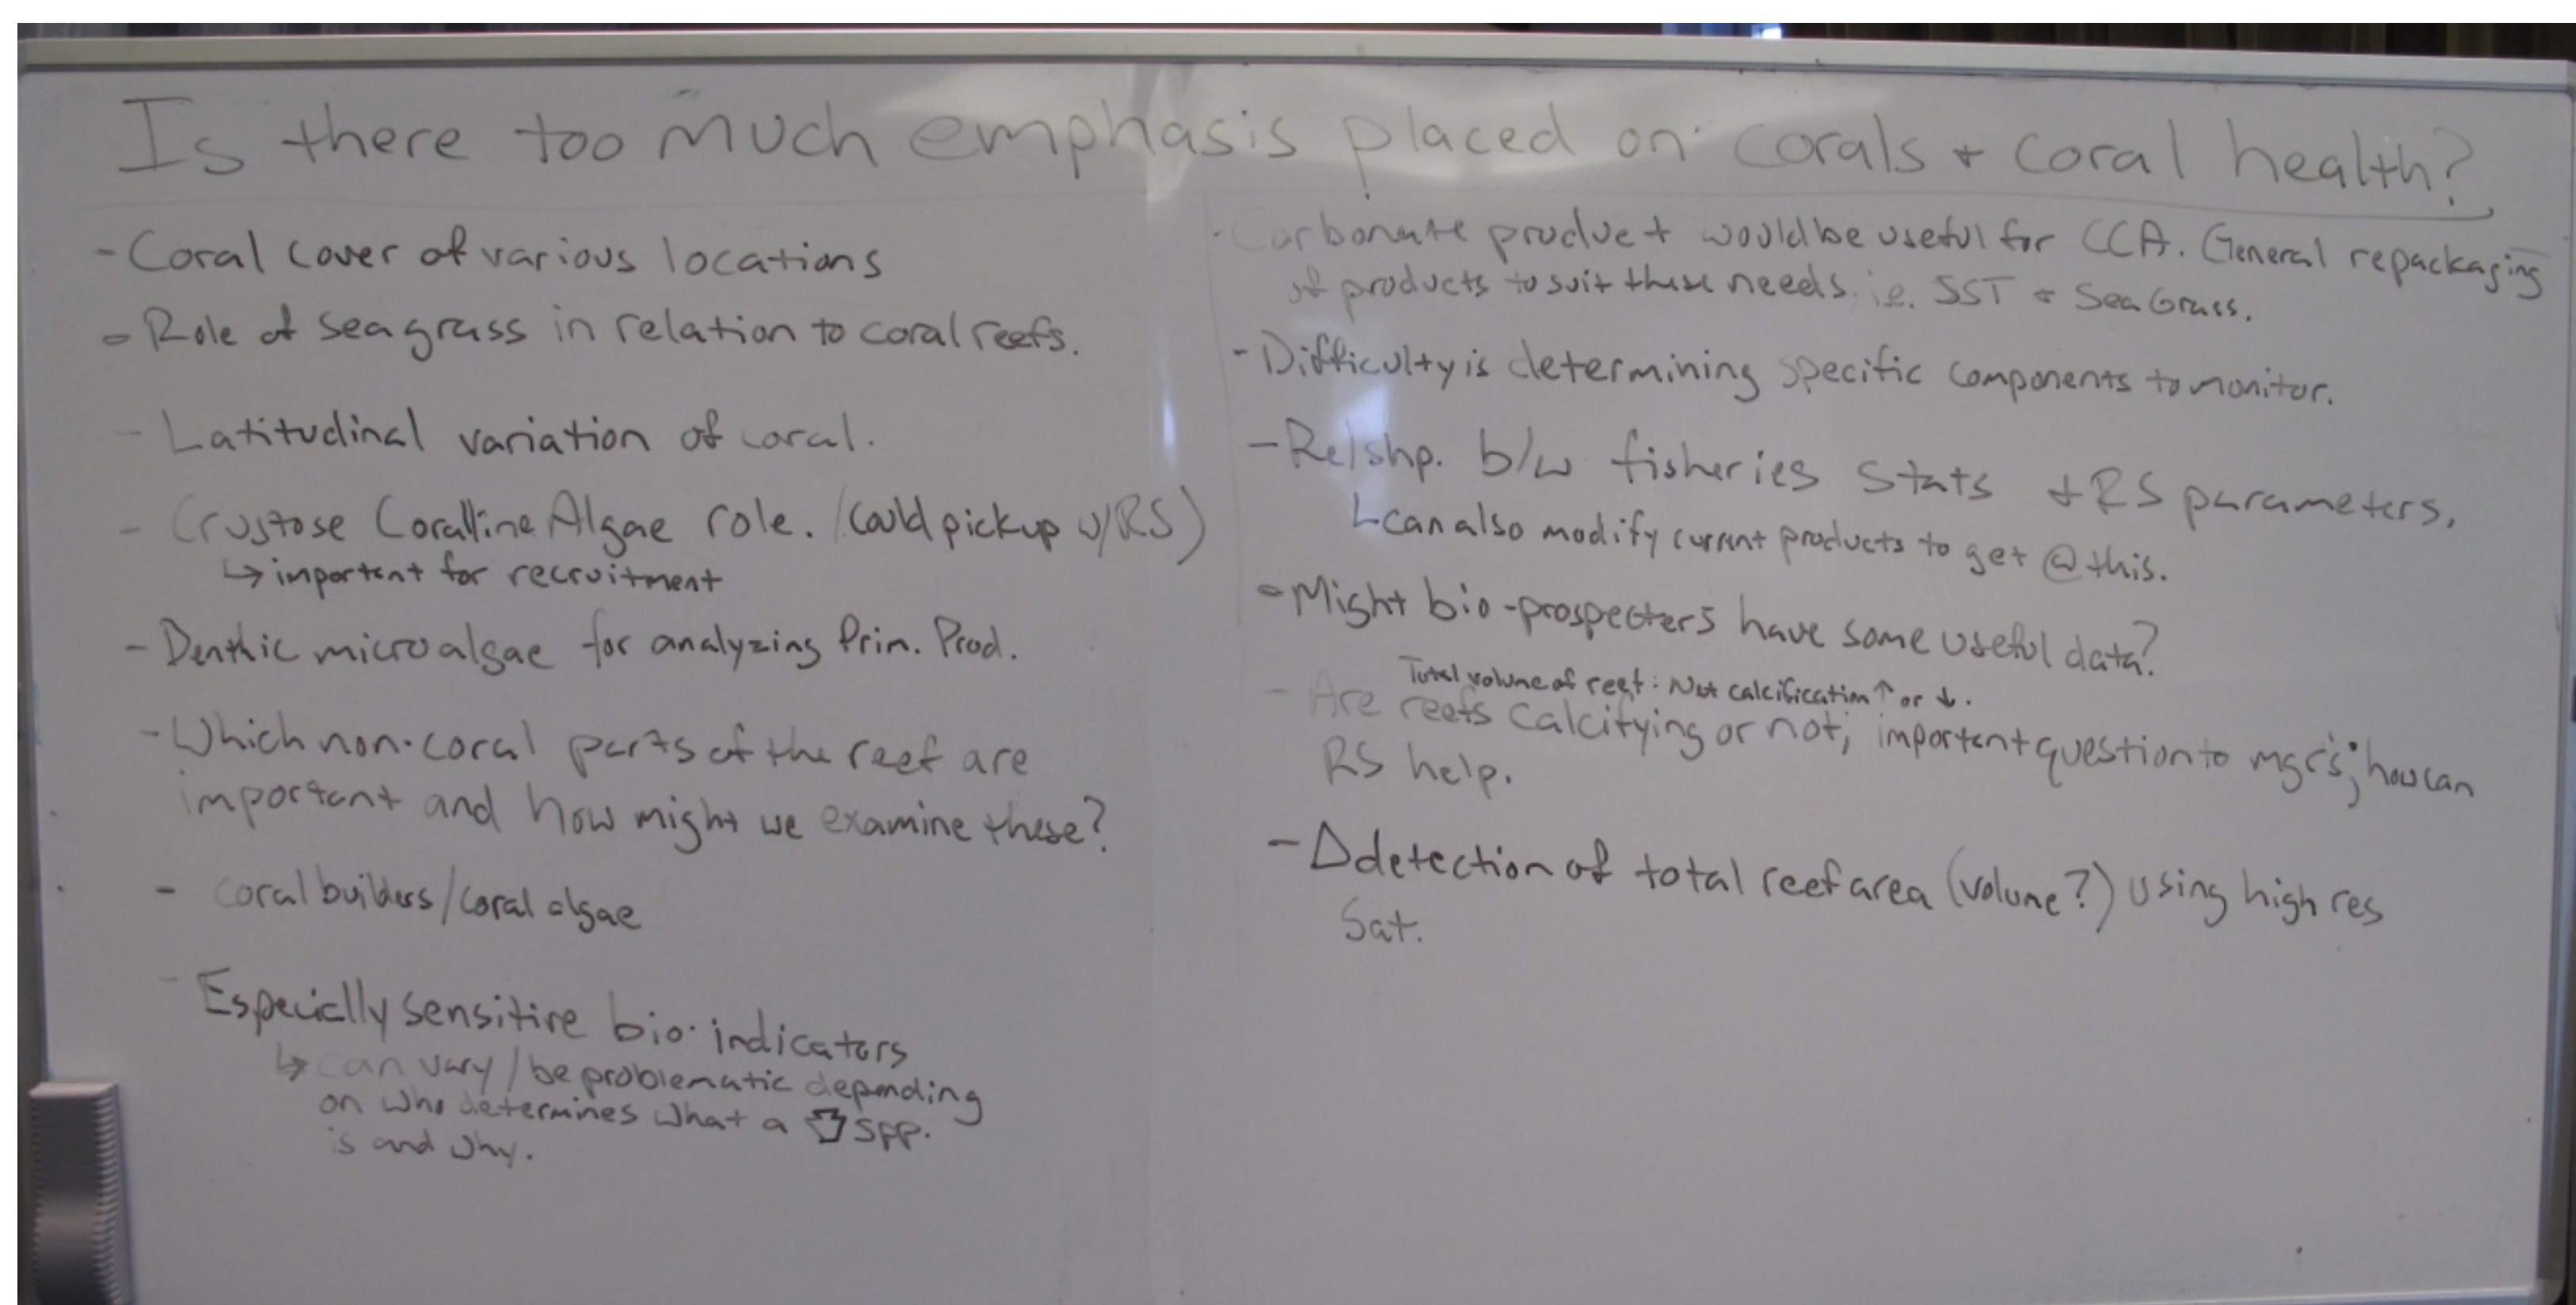 Is there too much emphasis placed on corals + coral health?
- Coral cover of various locations
- Role of seagrass in relation to coral reefs.
- Latitudinal variation of coral.
- Crustose Coralline Algae role. (could pickup w/RS)
↳ important for recruitment
- Benthic microalgae for analyzing Prim. Prod.
- Which non-coral parts of the reef are
important and how might we examine these?
- coral builders/coral algae
- Especially sensitive bio-indicators
↳ can vary / be problematic depending
on who determines what a spp.
is and why.
- Carbonate product would be useful for CCA. General repackaging
of products to suit these needs. i.e. SST + Sea Grass.
- Difficulty is determining specific components to monitor.
- Relshp. b/w fisheries stats + RS parameters.
↳ can also modify current products to get @ this.
- Might bio-prospecters have some useful data?
Total volume of reef: Net calcification ↑ or ↓.
- Are reefs calcifying or not; important question to mgr's; how can
RS help.
- Δ detection of total reef area (volume?) using high res
Sat.